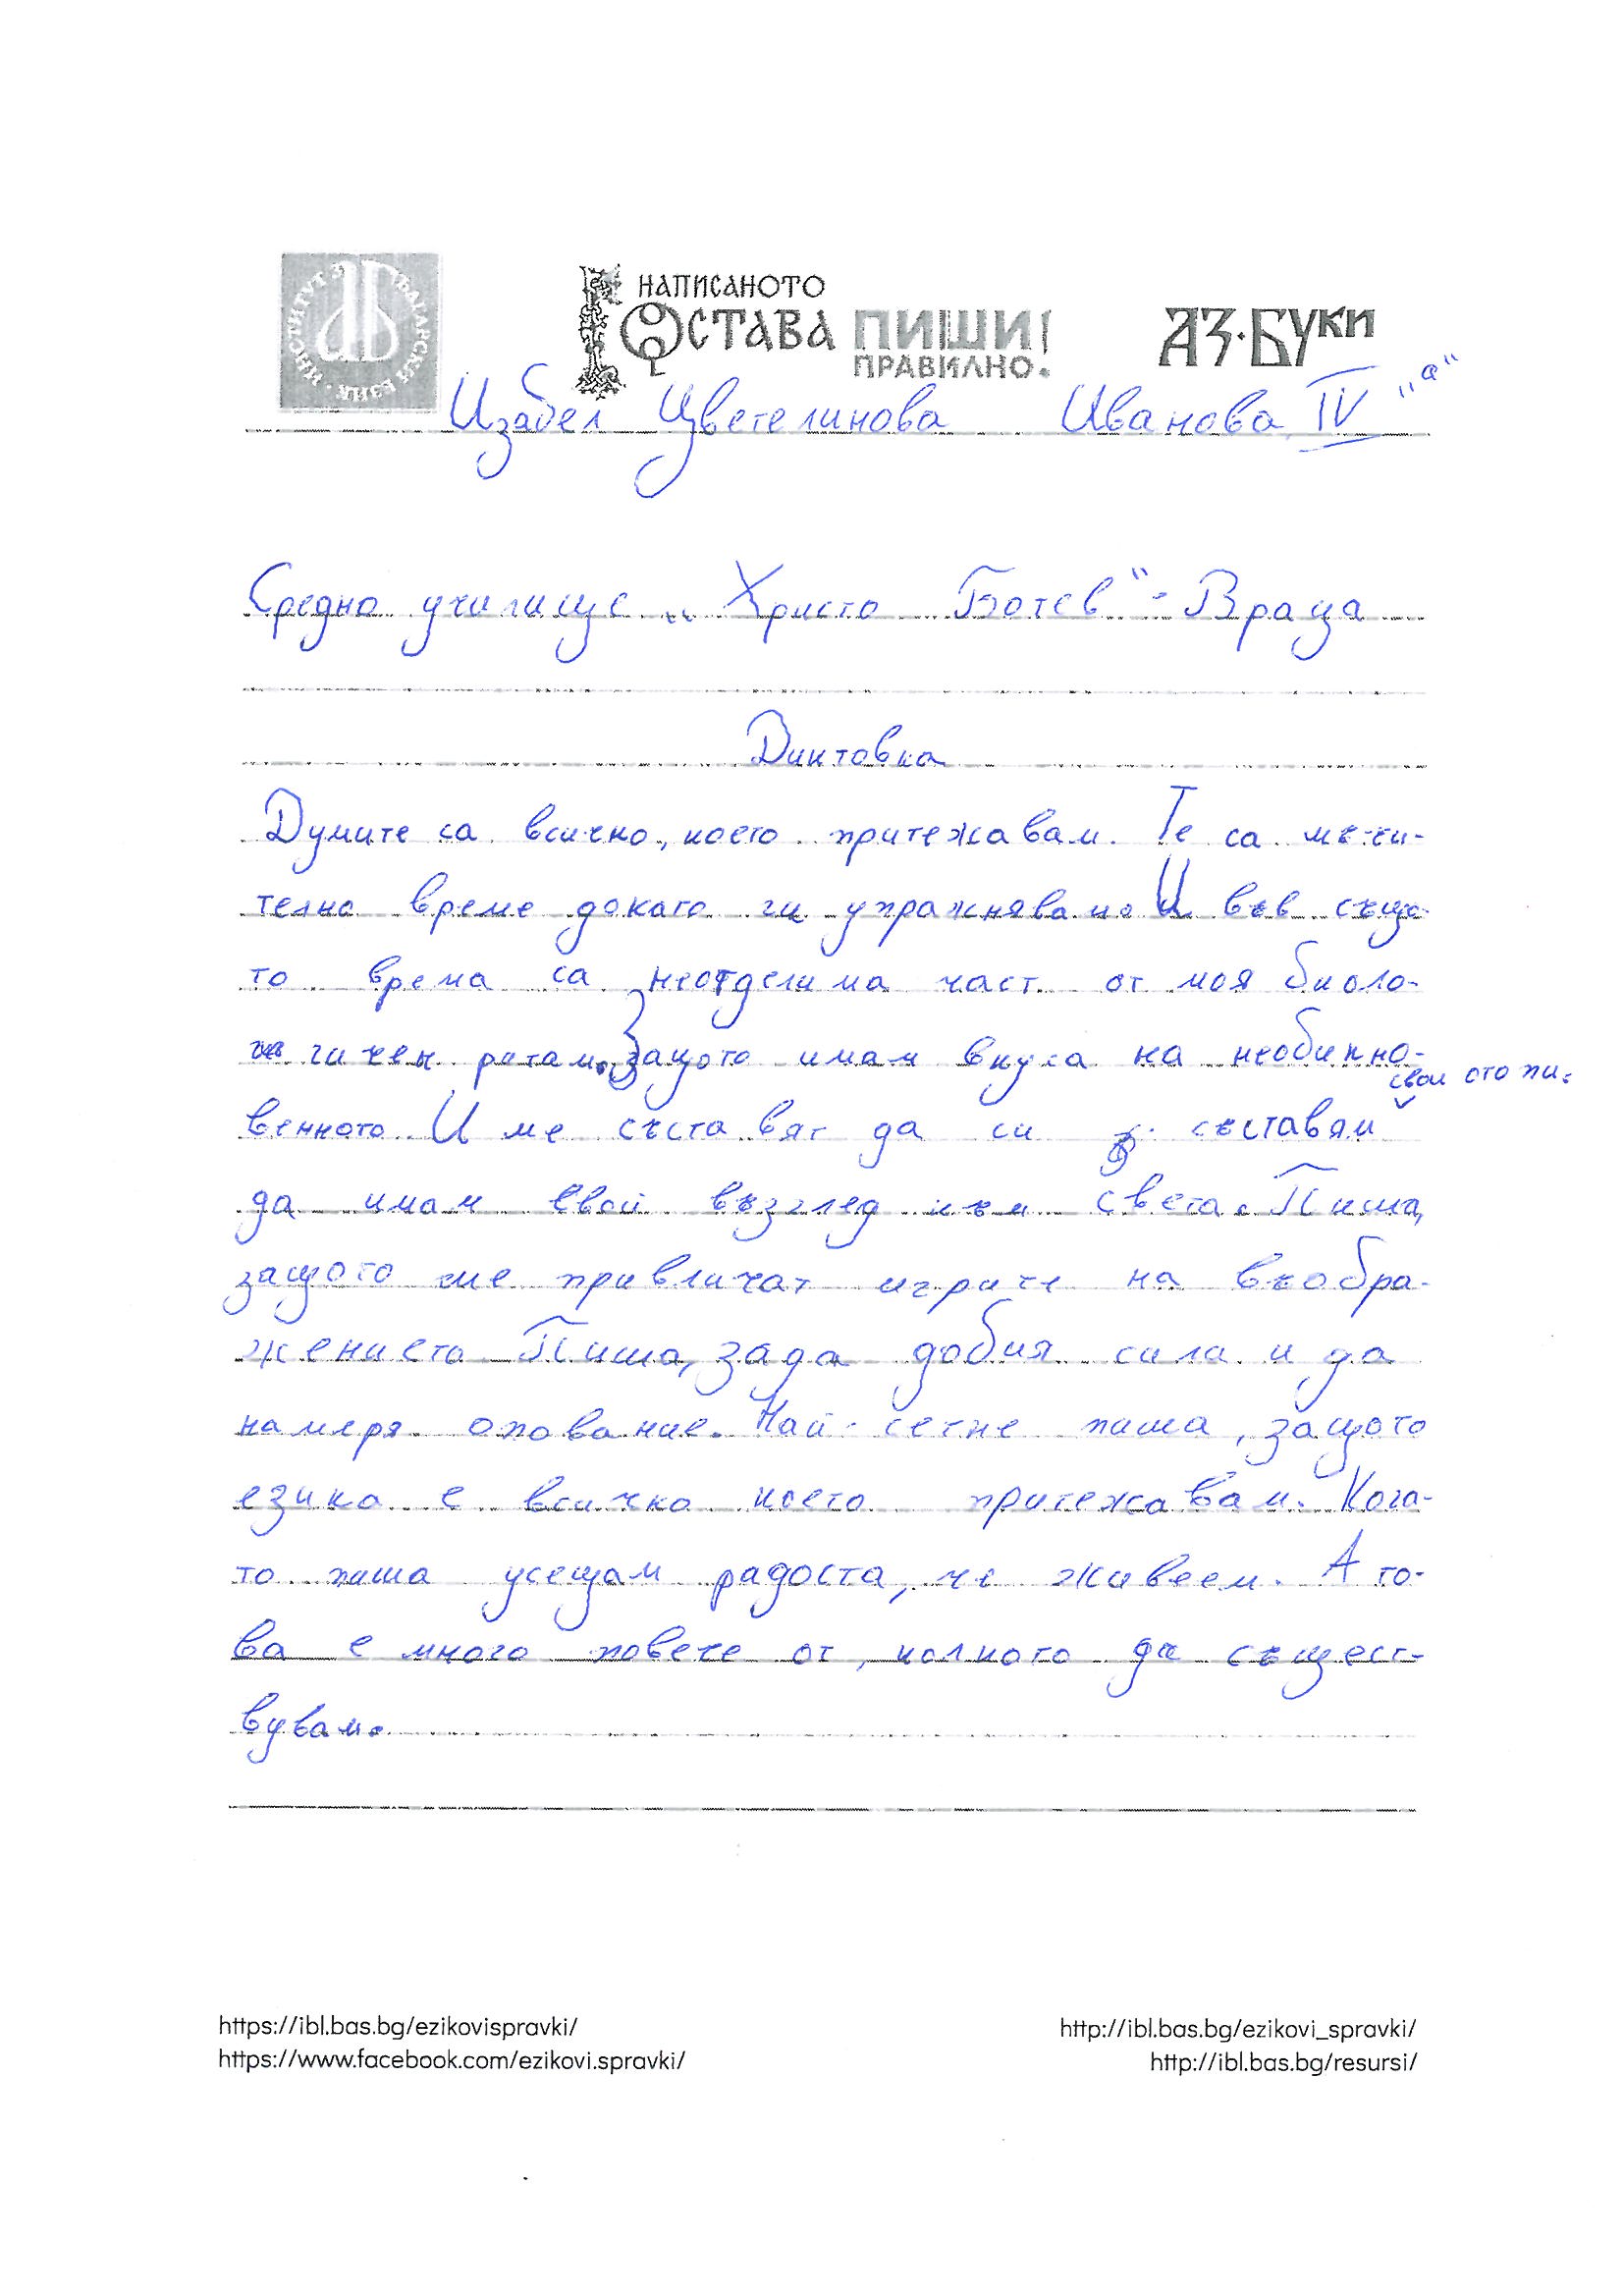 ИНСТИТУТ ЗА БЪЛГАРСКИ ЕЗИК
НАПИСАНОТО
ОСТАВА ПИШИ!
ПРАВИЛНО!
АЗ·БУКИ
Изабел Цветелинова Иванова IV "а"
Средно училище „Христо Ботев“ - Враца
Диктовка
Думите са всичко, което притежавам. Те са мъчи-
телно време докато ги упражнявам. И във също-
то време са неотделима част от моя биоло-
гичен ритам. Защото имам вкуса на необикно-
свои сто пи.
венното И ме съставят да си съставям
да имам свой възглед към света. Пиша,
защото ме привличат игрите на въобра-
жението Пиша, зада добия сила и да
намеря опование. Най-сетне пиша, защото
езика е всичко което притежавам. Кога-
то пиша усещам радоста, че живеем. А то-
ва е много повече от, колкото да същест-
вувам.
https://ibl.bas.bg/ezikovispravki/
https://www.facebook.com/ezikovi.spravki/
http://ibl.bas.bg/ezikovi_spravki/
http://ibl.bas.bg/resursi/